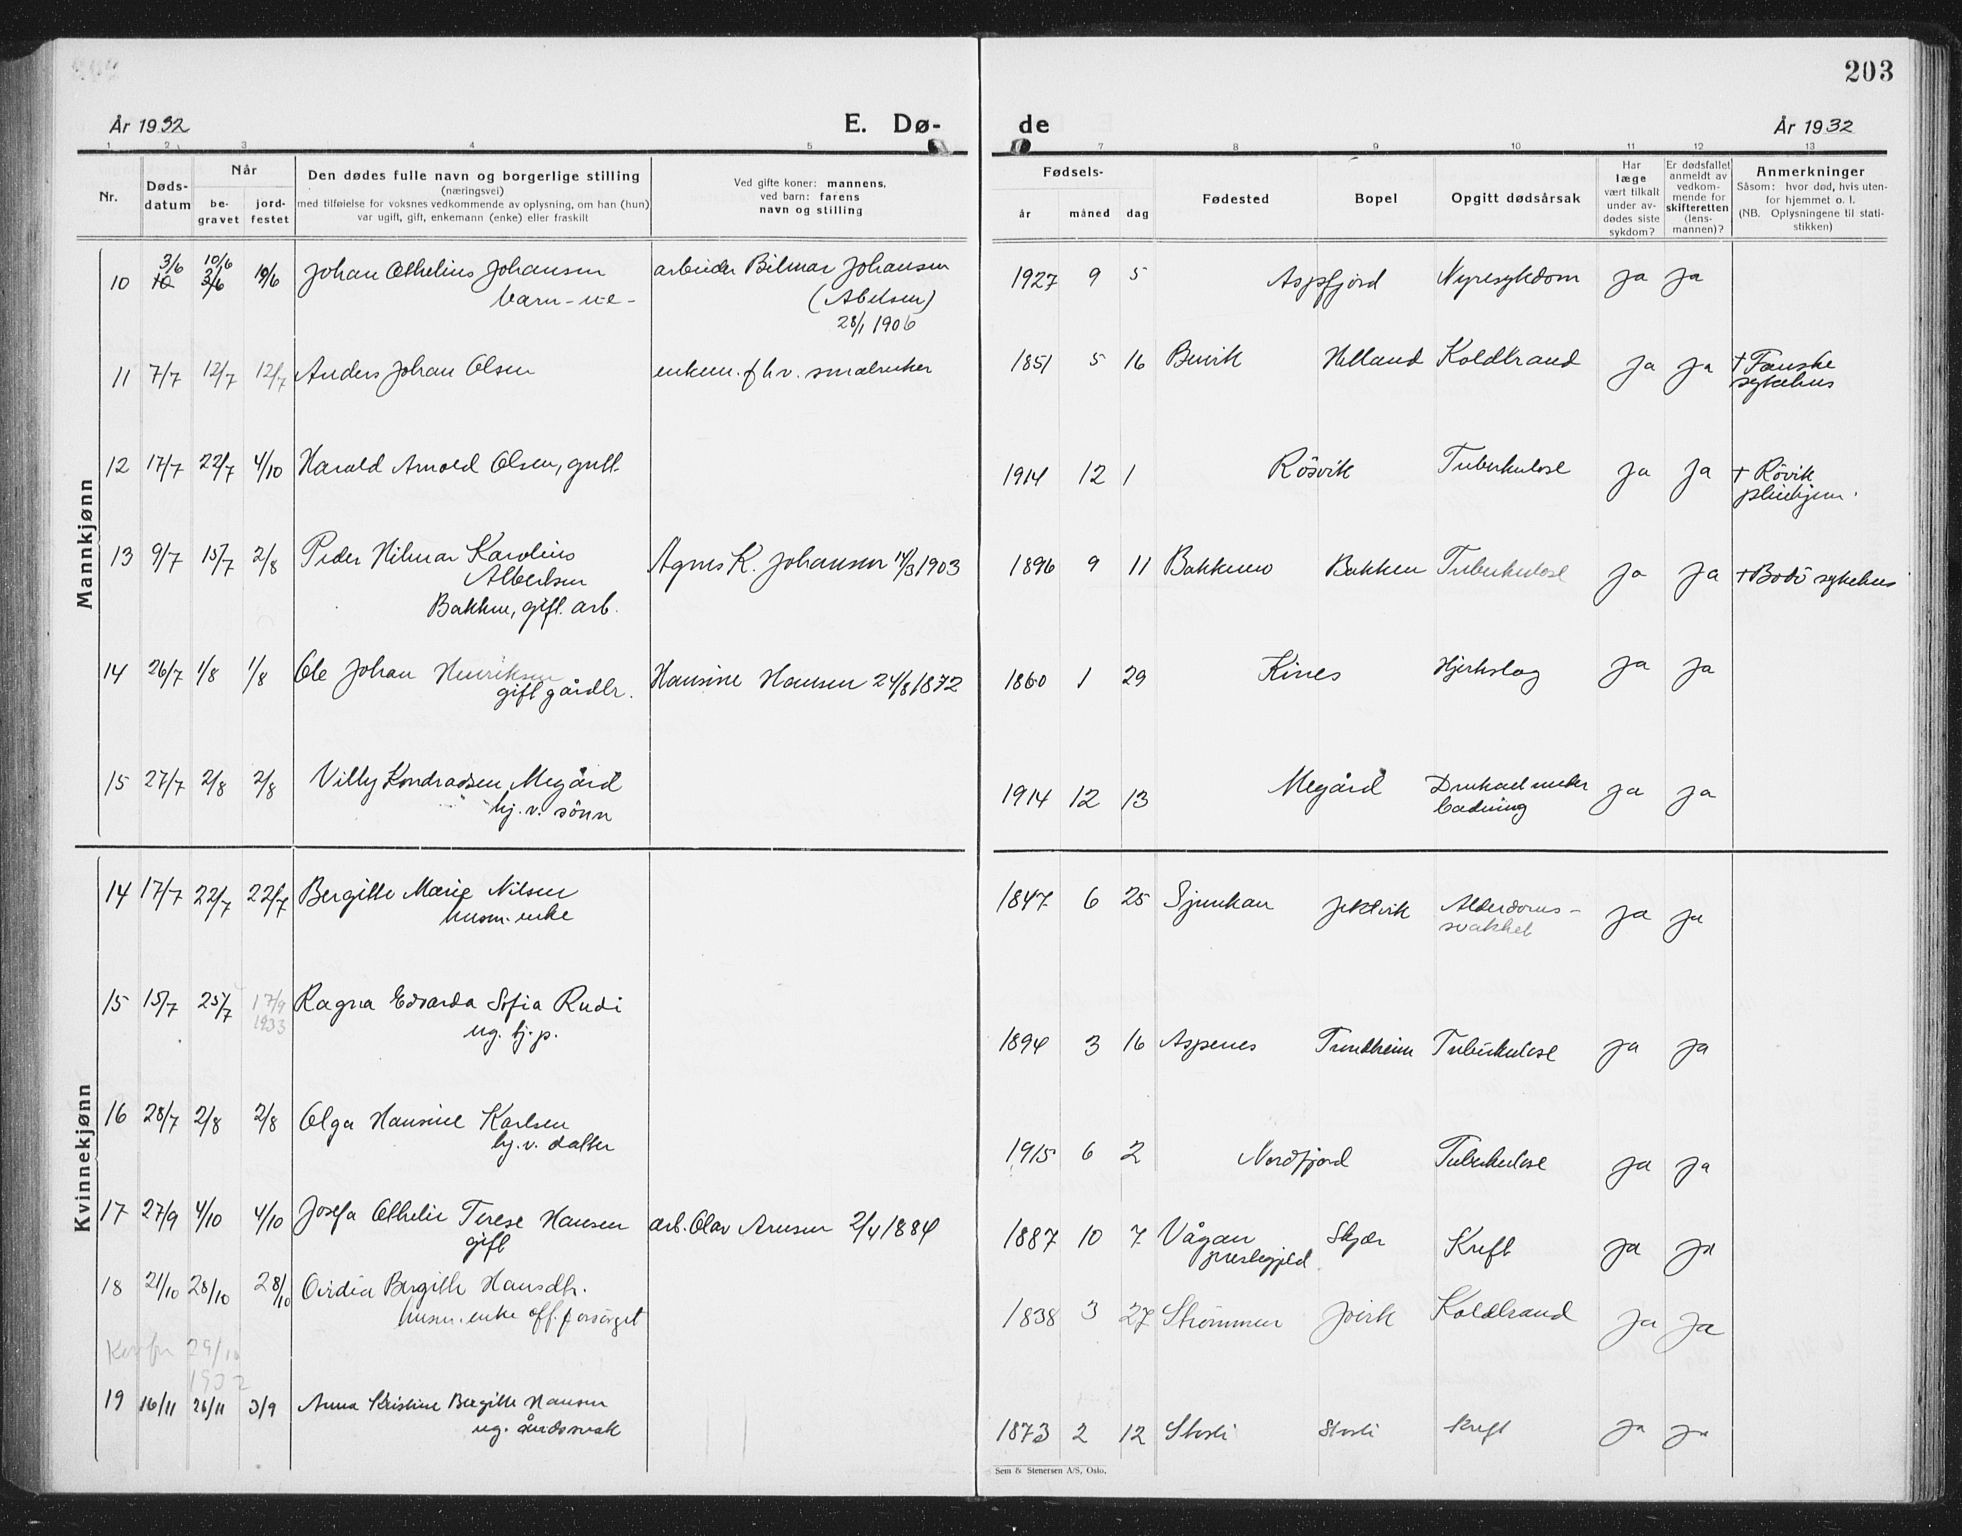 203
År 1932
E. Dø-
de
År 1932
1 2 3 4 5
7 8 9 10 11 12 13
Nr.
Døds-
datum
Når
be-
gravet
jord-
festet
Den dødes fulle navn og borgerlige stilling
(næringsvei)
med tilføielse for voksnes vedkommende av oplysning, om han (hun)
var ugift, gift, enkemann (enke) eller fraskilt
Ved gifte koner: mannens,
ved barn: farens
navn og stilling
Fødsels-
år måned dag
Fødested
Bopel
Opgitt dødsårsak
Har
læge
vært tilkalt
under av-
dødes siste
sykdom?
Er dødsfallet
anmeldt av
vedkom-
mende for
skifteretten
(lens-
mannen)?
Anmerkninger
Såsom: hvor død, hvis uten-
for hjemmet o. l.
(NB. Oplysningene til stati-
stikken)
Mannkjønn
3/6 10/6
10 10 3/6 19/6 Johan Othelius Johansen arbeider Bilmar Johansen 1927 9 5 Aspfjord Nyresykdom Ja Ja
barn - u e - (Abelsen)
28/1 1906
11 7/7 12/7 12/7 Anders Johan Olsen enkem. fhv. smalenker 1851 5 16 Helland Koldbrand Ja Ja † Fauske
sykehus
12 17/7 22/7 4/10 Harald Arnold Olsen, gutt 1914 12 1 Røsvik Tuberkulose Ja Ja + Røvik
pleiehjem.
13 9/7 15/7 2/8 Peder Hilmar Karolius Agnes K. Johansen 14/3 1903 1896 9 11 Bakken Tuberkulose Ja Ja + Bodö sykehus
Albertsen
Bakken, gift. arb.
14 26/7 1/8 1/8 Ole Johan Henriksen Hansine Hansen 24/8 1872 1860 1 29 Kines Hjerteslag Ja Ja
gift gårdbr.
15 27/7 2/8 2/8 Villy Kondradsen Megård 1914 12 13 Megård Druknet under Ja Ja
hj. v. sönn badning
Kvinnekjønn
14 17/7 22/7 22/7 Bergitte Marie Nilsen 1847 6 25 Sjunhan Jektvik Alderdoms- Ja Ja
husm. enke svakhet
15 15/7 25/7 17/9 Ragna Edvarda Sofia Rudi 1894 3 16 Aspenes Trondheim Tuberkulose Ja Ja
1933 ug. hj. p.
16 28/7 2/8 2/8 Olga Hansine Karlsen 1915 6 2 Nordfjord Tuberkulose Ja Ja
hj. v. datter
17 27/9 4/10 4/10 Josefa Othelie Terese Hansen arb. Olav Arnesen 2/4 1884 1887 10 7 Vågan Skjær Kreft Ja Ja
gift prestegjeld
18 21/10 28/10 28/10 Ovidia Bergitte Hansdtr. 1838 3 27 Strømmen Koldbrand Ja Ja
husm. enke off. forsörget
29/10
1932
19 16/11 26/11 3/9 Anna Kristine Bergitte Hansen 1873 2 12 Storli Storli kreft Ja Ja
ug. åndssvak
Sem & Stenersen A/S, Oslo.